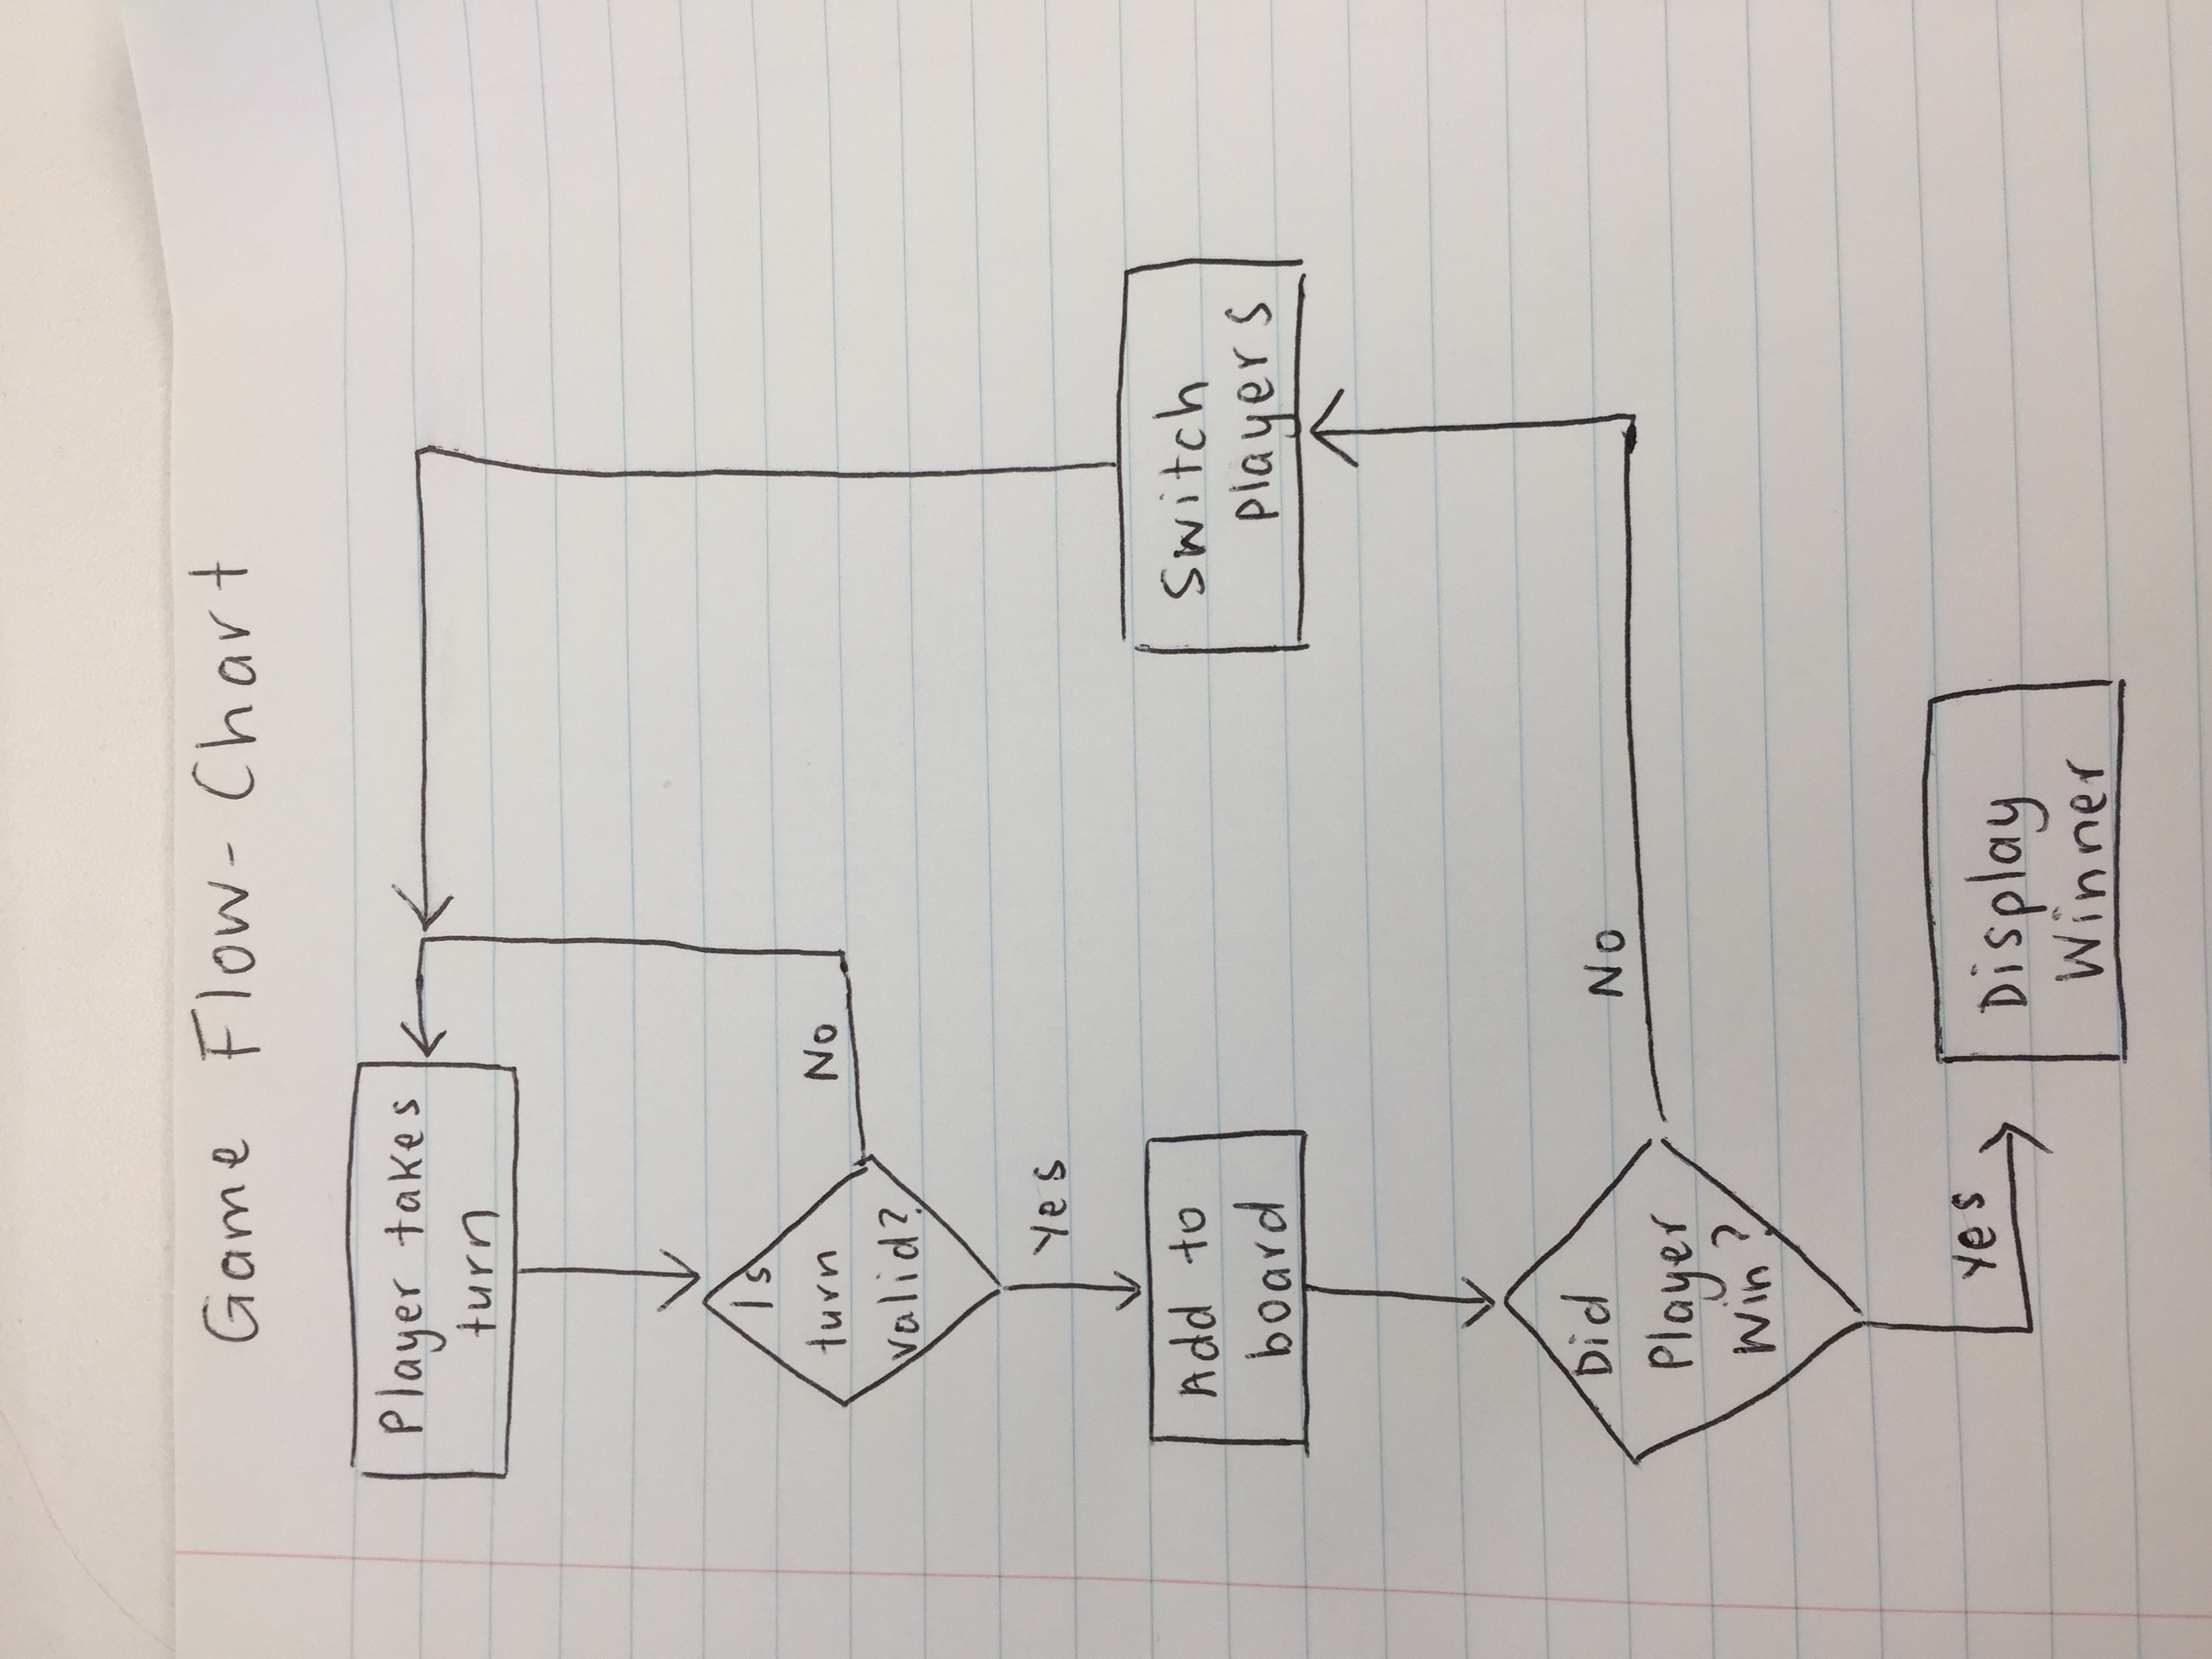 Game Flow-Chart
Player takes
turn
Is
turn
valid?
No
Yes
Add to
board
Switch
players
Did
Player
Win?
No
Yes
Display
Winner